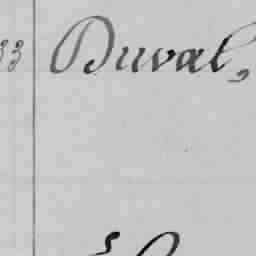 33 Duval,